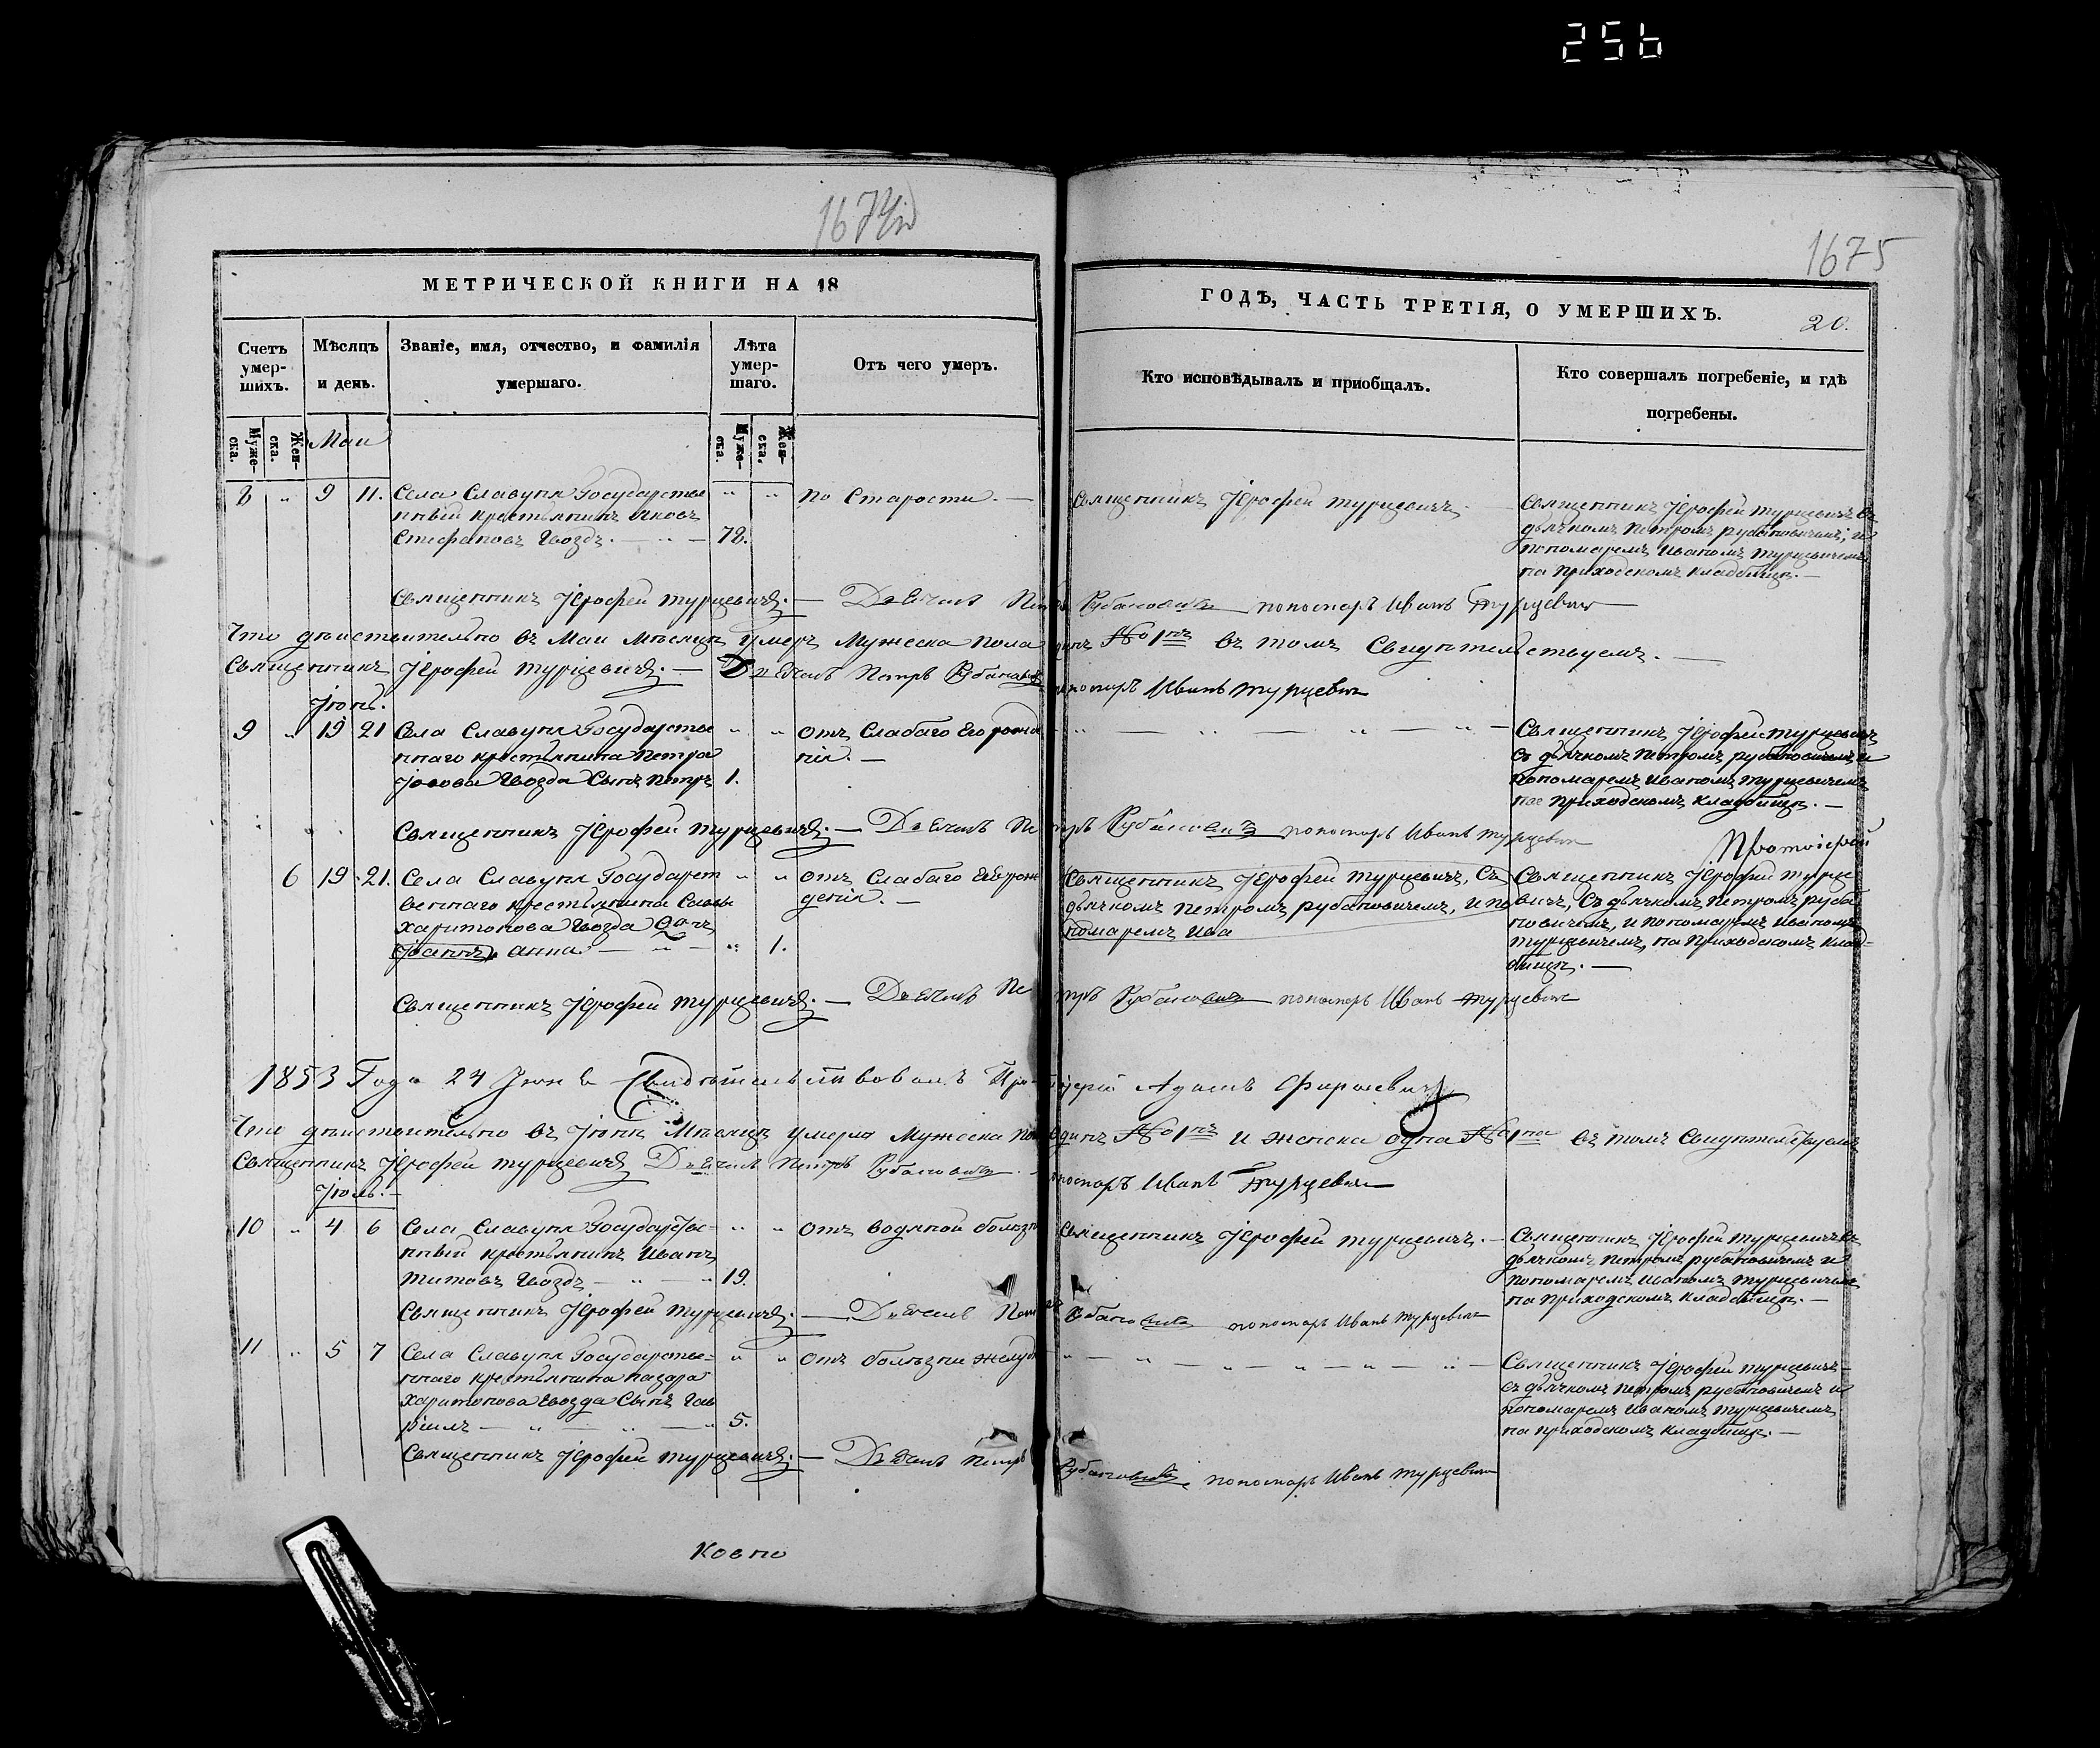 256
1674
1675
МЕТРИЧЕСКОЙ КНИГИ НА 18
ГОДЪ, ЧАСТЬ ТРЕТІЯ, О УМЕРШИХЪ.
20.
Счетъ умер-шихъ.
Мѣсяцъ и день.
Званіе, имя, отчество, и фамилія умершаго.
Лѣта умер-шаго.
Отъ чего умеръ.
Кто исповѣдывалъ и приобщалъ.
Кто совершалъ погребеніе, и гдѣ погребены.
Муже-ска.
Жен-ска.
Муже-ска.
Жен-ска.
Маи
8 „ 9 11. Села Славупя Государстве „ „ по Старости. — Священникъ Іерофей Турцевичъ. Священникъ Іерофей Турцевичъ съ
нный крестьянинъ Яковъ дьячкомъ Петромъ Рубановичемъ, и
Стефановъ Гвоздъ. — „ — 78. пономаремъ Иваномъ Турцевичемъ
на приходскомъ кладбищѣ. —
Священникъ Іерофей Турцевичъ. — Дьячекъ Петръ Рубановичъ пономарь Иванъ Турцевичъ —
Что дѣйствительно въ Маи Мѣсяцѣ умеръ Мужеска пола одинъ №1нъ въ томъ Свидѣтельствуемъ. —
Священникъ Іерофей Турцевичъ. — Дьячекъ Петръ Рубановичъ пономарь Иванъ Турцевичъ
Іюнь.
9 „ 19 21 Села Славупя Государстве „ „ отъ Слабаго Его рожде „ — „ — „ — „ — Священникъ Іерофей Турцевичъ
ннаго крестьянина Петра нія. — съ дьячкомъ Петромъ Рубановичемъ и
Іосова Гвозда Сынъ Петръ 1. пономаремъ Иваномъ Турцевичемъ
на приходскомъ кладбищѣ. —
Священникъ Іерофей Турцевичъ. — Дьячекъ Петръ Рубановичъ пономарь Иванъ Турцевичъ
Протоіерей
6 19 21. Села Славупя Государст „ „ отъ Слабаго Ея рож Священникъ Іерофей Турцевичъ, Съ Священникъ Іерофей Турце
веннаго крестьянина Саввы денія. — дьячкомъ Петромъ Рубановичемъ, и по вичъ, Съ дьячкомъ Петромъ Руба
Харитонова Гвозда дочь пномаремъ Ива новичемъ, и пономаремъ Иваномъ
Іоаннъ Анна — „ — „ 1. Турцевичемъ, на приходскомъ клад-
бищѣ. —
Священникъ Іерофей Турцевичъ. — Дьячекъ Петръ Рубановичъ пономарь Иванъ Турцевичъ
1853 Года 24 Іюня Свидѣтельствовалъ Протоіерей Адамъ
Что дѣйствительно въ Іюнѣ Мѣсяцѣ умерло Мужеска пола одинъ №1нъ и женска одна №1на въ томъ Свидѣтельствуемъ
Священникъ Іерофей Турцевичъ Дьячекъ Петръ Рубановичъ. пономарь Иванъ Турцевичъ
Іюль. —
10 „ 4 6 Села Славупя Государстве- „ „ отъ водяной болѣзни Священникъ Іерофей Турцевичъ. — Священникъ Іерофей Турцевичъ съ
нный крестьянинъ Иванъ дьячкомъ Петромъ Рубановичемъ и
Титовъ Гвоздъ — „ — „ 19. пономаремъ Иваномъ Турцевичемъ
на приходскомъ кладбищѣ. —
Священникъ Іерофей Турцевичъ. — Дьячекъ Петръ Рубановичъ пономарь Иванъ Турцевичъ
11 „ 5 7 Села Славупя Государстве= „ „ отъ болѣзни желуд „ — „ — „ — „ — „ — Священникъ Іерофей Турцевичъ —
ннаго крестьянина Назара съ дьячкомъ Петромъ Рубановичемъ и
Харитонова Гвозда Сынъ Гав пономаремъ Иваномъ Турцевичемъ
ріилъ — „ — „ — „ 5. на приходскомъ кладбищѣ. —
Священникъ Іерофей Турцевичъ. — Дьячекъ Петръ Рубановичъ, пономарь Иванъ Турцевичъ
Ковно